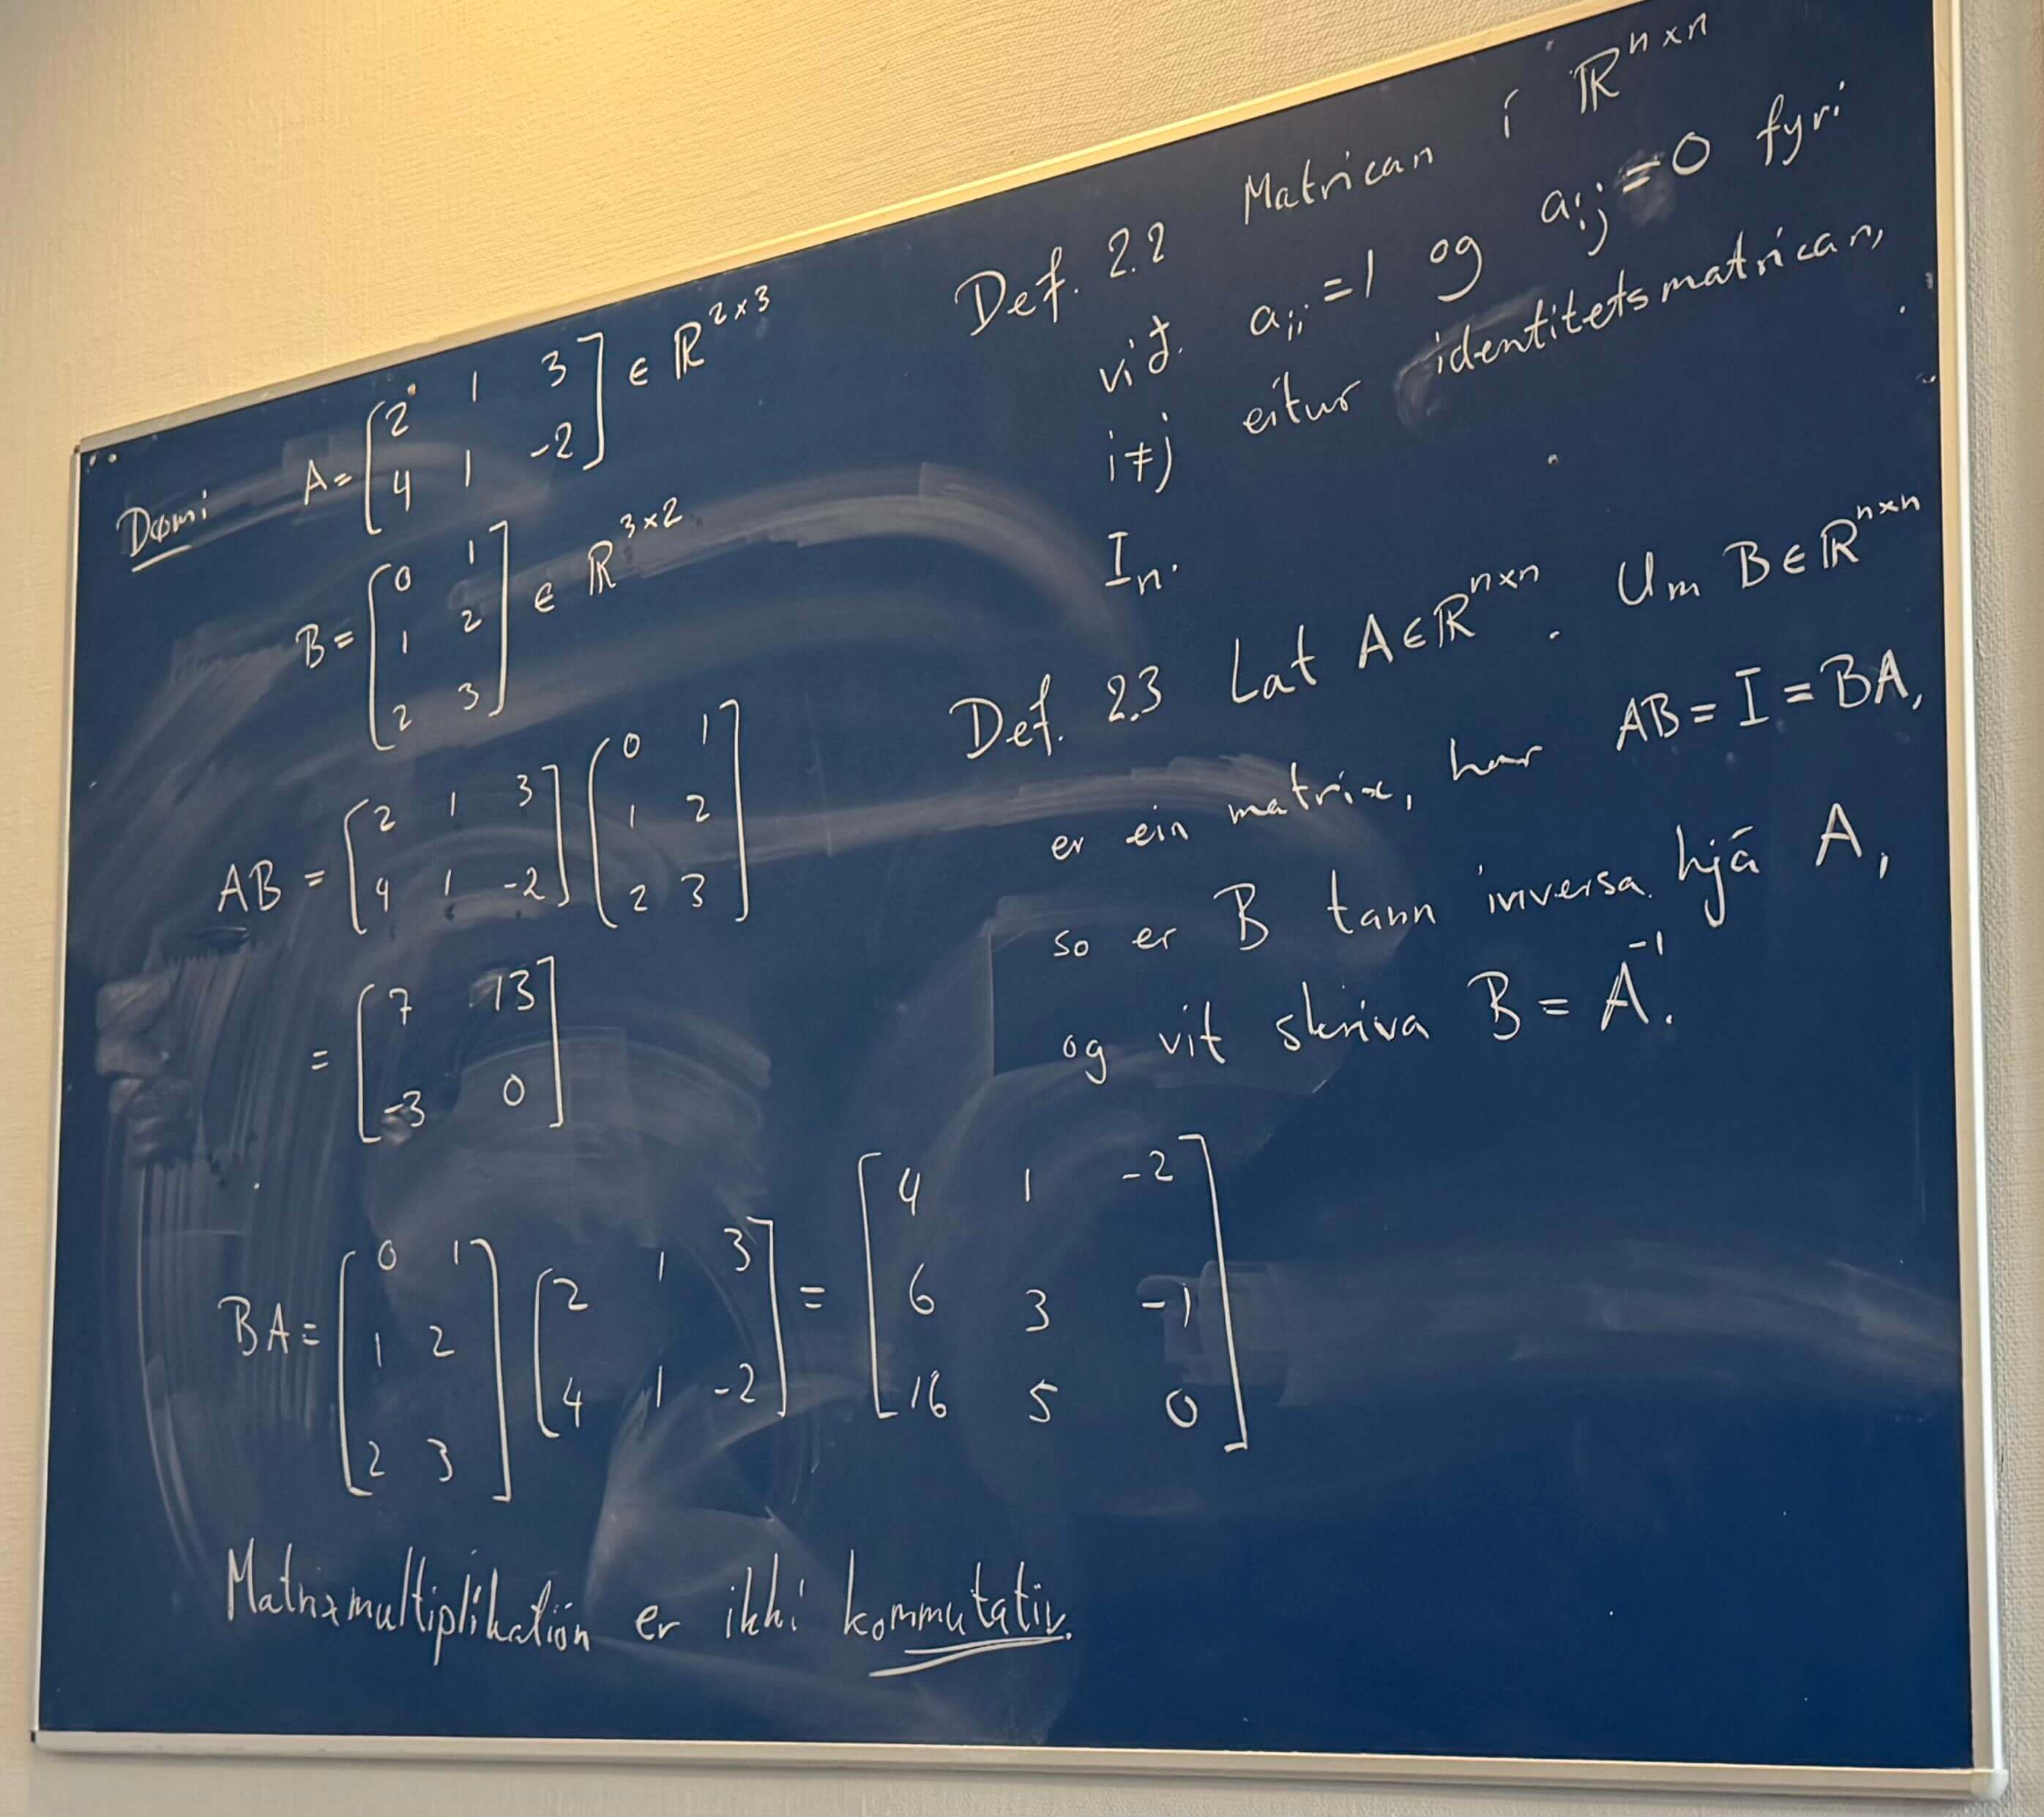 Dømi A = [2 1 3
4 1 -2] ∈ ℝ^{2×3}
B = [0 1
1 2
2 3] ∈ ℝ^{3×2}
AB = [2 1 3
4 1 -2] [0 1
1 2
2 3]
= [7 13
-3 0]
BA = [0 1
1 2
2 3] [2 1 3
4 1 -2] = [4 1 -2
6 3 -1
16 5 0]
Matrixmultiplikatión er ikki kommutativ.
Def. 2.2 Matrican í ℝ^{n×n}
við a_{ii} = 1 og a_{ij} = 0 fyri
i ≠ j eitur identitetsmatrican,
I_n.
Def. 2.3 Lat A ∈ ℝ^{n×n}. Um B ∈ ℝ^{n×n}
er ein matrix, har AB = I = BA,
so er B tann inversa hjá A,
og vit skriva B = A^{-1}.